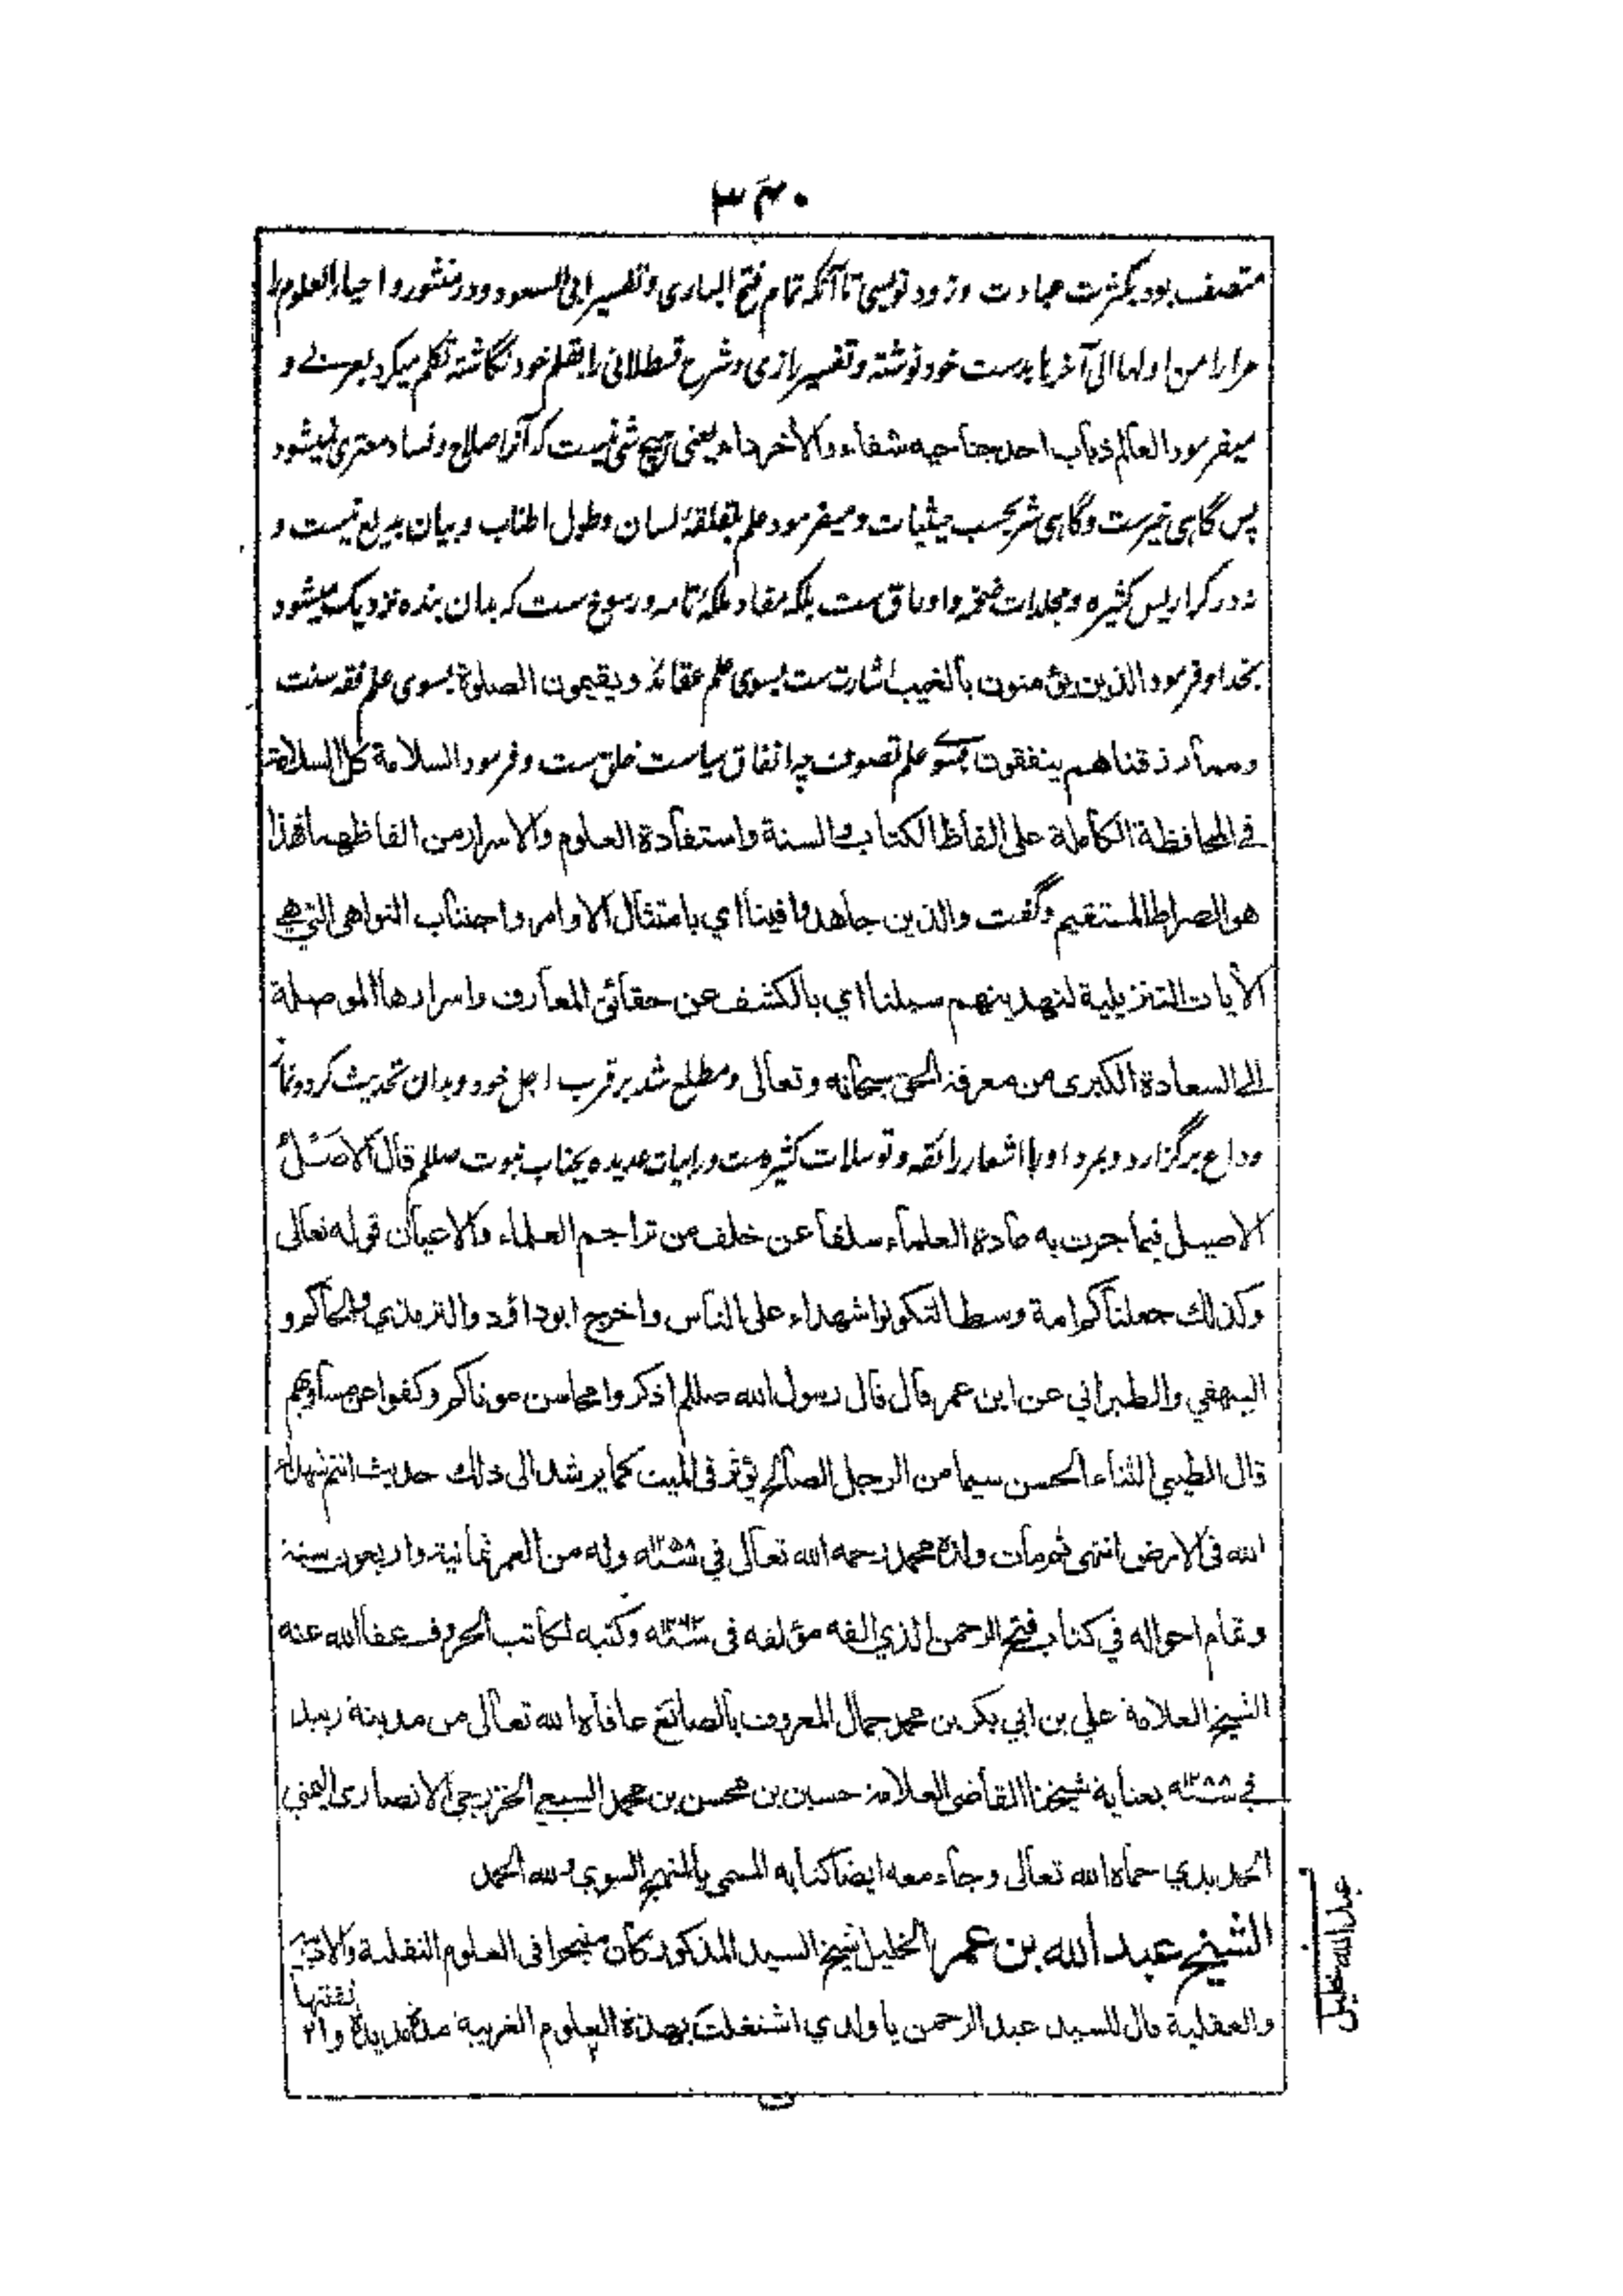 ۳۴۰
متصف بود بکثرت عبادت و زود نویسی تا آنکه تمام فتح الباری و تفسیر ابی السعود و در منثور و احیاء العلوم را
مرارا من اولها الی آخرها بدست خود نوشته و تفسیر رازی و شرح قسطلانی را بقلم خود نگاشته تکلم میکرد بعربی و
میفرمود العالم ذباب احد جناحیه شفاء والآخر داء یعنی هیچ شئ نیست که آنرا صلاح و فساد معتری نمیشود
پس گاهی خیرست و گاهی شر بحسب حیثیات و میفرمود علم بقلقهٔ لسان و طول اطناب و بیان بدیع نیست و
نه در کراریس کثیره و مجلدات ضخمه و اوراق ست بلکه مفاد ملکهٔ تامه و رسوخ ست که بدان بنده نزدیک میشود
بخدا و فرمود الذین یؤمنون بالغیب اشارت ست بسوی علم عقائد و یقیمون الصلوة بسوی علم فقه سنت
ومما رزقناهم ینفقون بسوی علم تصوف چه انفاق سیاست خلق ست و فرمود السلامة کل السلامة
فی المحافظة الکاملة علی الفاظ الکتاب والسنة واستفادة العلوم والاسرار من الفاظهما فهذا
هو الصراط المستقیم وگفت والذین جاهدوا فینا ای بامتثال الاوامر واجتناب النواهی التی هی
الآیات التنزیلیة لنهدینهم سبلنا ای بالکشف عن حقائق المعارف واسرارها الموصلة
الی السعادة الکبری من معرفة الحق سبحانه وتعالی و مطلع شد بر قرب اجل خود و بدان تحدیث کرد و نماز
وداع برگزارد و بمرد او را اشعار رائقه و توسلات کثیره ست و رابیات عدیده بجناب نبوت صللم قال الاصل
الاصیل فیما جرت به عادة العلماء سلفا عن خلف من تراجم العلماء والاعیان قوله تعالی
وکذلك جعلناکم امة وسطا لتکونوا شهداء علی الناس واخرج ابوداؤد والترمذي والحاکم و
البیهقي والطبراني عن ابن عمر قال قال رسول الله صللم اذکروا محاسن موتاکم وکفوا عن مساویهم
قال الطیبي الثناء الحسن سیما من الرجل الصالح یؤثر فی المیت کما یرشد الی ذلك حدیث انتم شهداء
الله فی الارض انتهی ثم مات ولده محمد رحمه الله تعالی في وله من العمر ثمانیة واربعون سنة
وتمام احواله في کتاب فتح الرحمن الذي الفه مؤلفه فی وکتبه لکاتب الحروف عفا الله عنه
الشیخ العلامة علي بن ابي بکر بن محمد جمال المعروف بالصائغ عافاه الله تعالی من مدینة زبید
في بعنایة شیخنا القاضی العلامة حسین بن محسن بن محمد السبیعي الخزرجي الانصاری الیمني
الحدیدي حماه الله تعالی وجاء معه ایضا کتابه المسمی بالمنهج السوي ولله الحمد
الشیخ عبد الله بن عمر الخلیل شیخ السید المذکور کان متبحرا فی العلوم النقلیة والادبیة
والعقلیة قال للسید عبد الرحمن یا ولدي اشتغلت بهذه العلوم الغریبة مدة مدیدة و
لفتتها
عبد الله خلیل